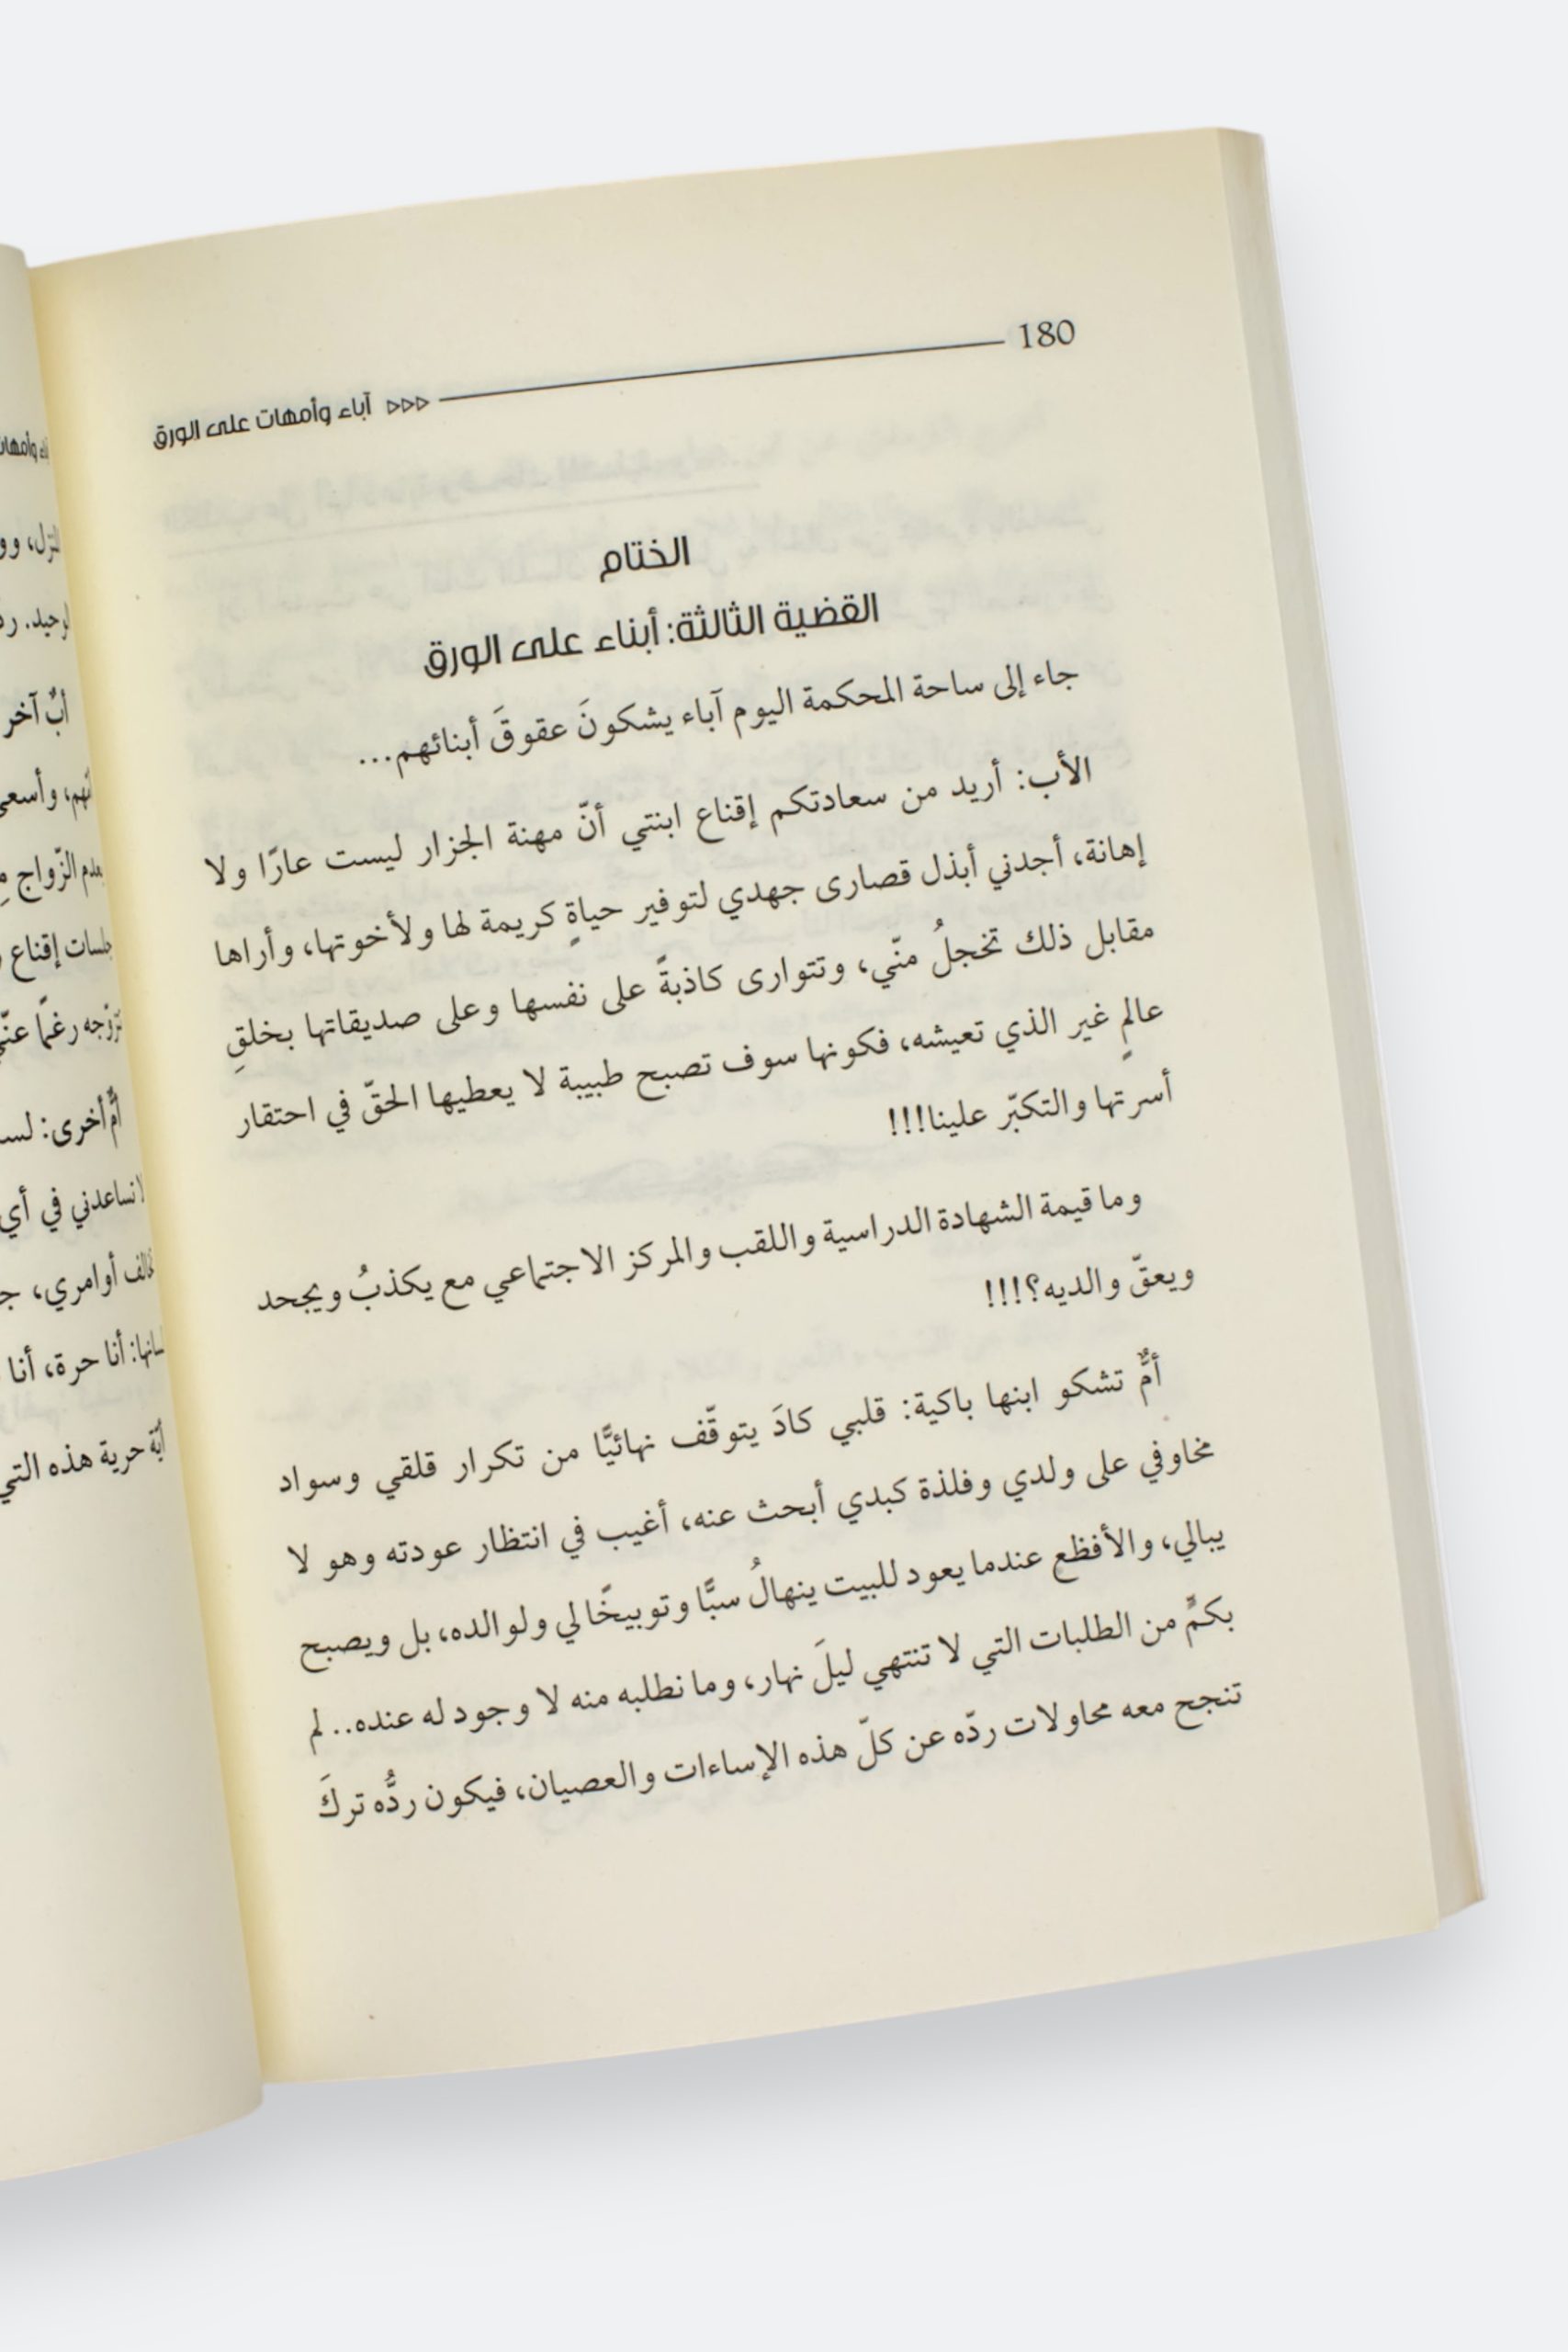 180
آباء وأمهات على الورق
الختام
القضية الثالثة: أبناء على الورق
جاء إلى ساحة المحكمة اليوم آباء يشكونَ عقوقَ أبنائهم...
الأب: أريد من سعادتكم إقناع ابنتي أنّ مهنة الجزار ليست عارًا ولا
إهانة، أجدني أبذل قصارى جهدي لتوفير حياةٍ كريمة لها ولأخوتها، وأراها
مقابل ذلك تخجلُ منّي، وتتوارى كاذبةً على نفسها وعلى صديقاتها بخلقِ
عالمٍ غير الذي تعيشه، فكونها سوف تصبح طبيبة لا يعطيها الحقّ في احتقار
أسرتها والتكبّر علينا!!!
وما قيمة الشهادة الدراسية واللقب والمركز الاجتماعي مع يكذبُ ويجحد
ويعقّ والديه؟!!!
أمٌّ تشكو ابنها باكية: قلبي كادَ يتوقّف نهائيًّا من تكرار قلقي وسواد
مخاوفي على ولدي وفلذة كبدي أبحث عنه، أغيب في انتظار عودته وهو لا
يبالي، والأفظع عندما يعود للبيت ينهالُ سبًّا وتوبيخًا لي ولوالده، بل ويصبح
بكمٍّ من الطلبات التي لا تنتهي ليلَ نهار، وما نطلبه منه لا وجود له عنده.. لم
تنجح معه محاولات ردّه عن كلّ هذه الإساءات والعصيان، فيكون ردُّه تركَ
وأمهات
أبٌ آخر
وأسعى
الزّواج
إقناع
رغمًا عنّي
أمٌّ أخرى:
تساعدني في أي
أوامري،
أنا حرة، أنا
أيّة حرية هذه التي